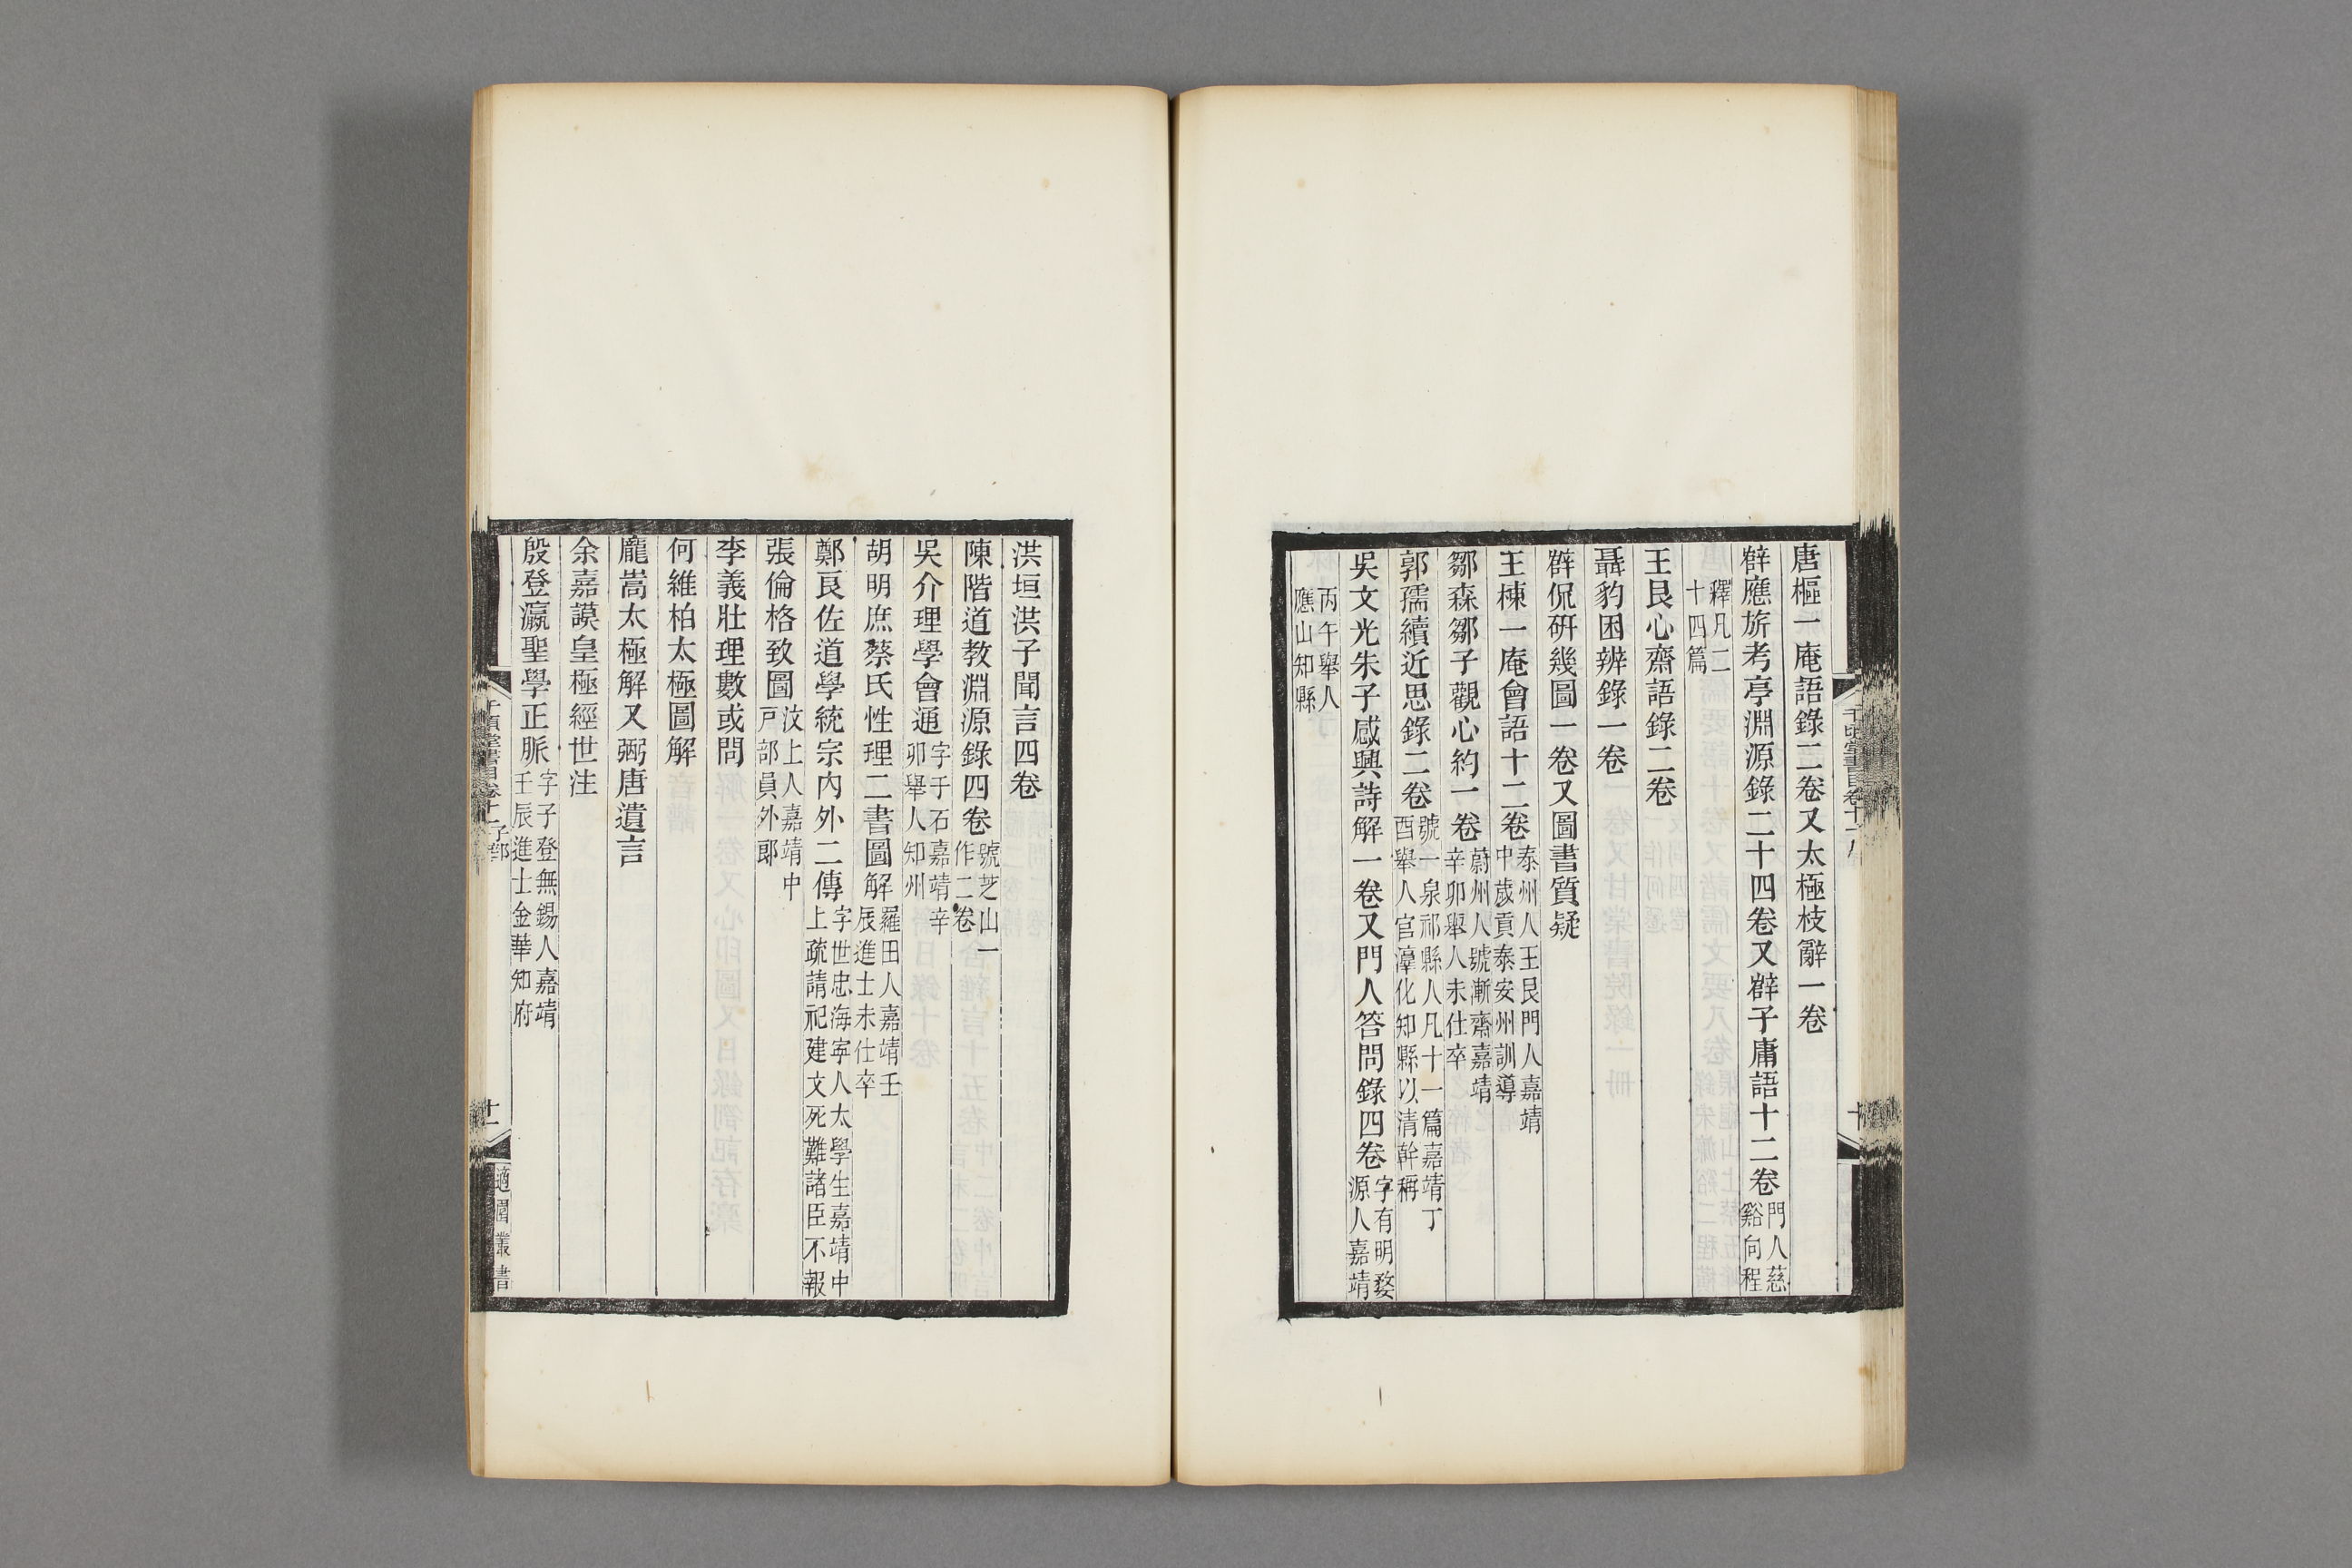 唐樞一庵語錄二卷又太極枝辭一卷
薛應旂考亭淵源錄二十四卷又薛子庸語十二卷門人慈谿向程
釋凡二十四篇
王艮心齋語錄二卷
聶豹困辨錄一卷
薛侃研幾圖一卷又圖書質疑
王棟一庵會語十二卷泰州人王艮門人嘉靖中歲貢泰安州訓導
鄒森鄒子觀心約一卷蔚州人號漸齋嘉靖辛卯舉人未仕卒
郭孺續近思錄二卷號一泉祁縣人凡十一篇嘉靖丁酉舉人官漳化知縣以清幹稱
吳文光朱子感興詩解一卷又門人答問錄四卷字有明婺源人嘉靖
丙午舉人應山知縣
洪垣洪子聞言四卷
陳階道教淵源錄四卷號芝山一作二卷
吳介理學會通字于石嘉靖辛卯舉人知州
胡明庶蔡氏性理二書圖解羅田人嘉靖壬辰進士未仕卒
鄭良佐道學統宗內外二傳字世忠海寧人太學生嘉靖中上疏請祀建文死難諸臣不報
張倫格致圖汶上人嘉靖中戶部員外郎
李義壯理數或問
何維柏太極圖解
龐嵩太極解又弼唐遺言
余嘉謨皇極經世注
殷登瀛聖學正脈字子登無錫人嘉靖壬辰進士金華知府
千頃堂書目卷十一 子部
十一
適園叢書